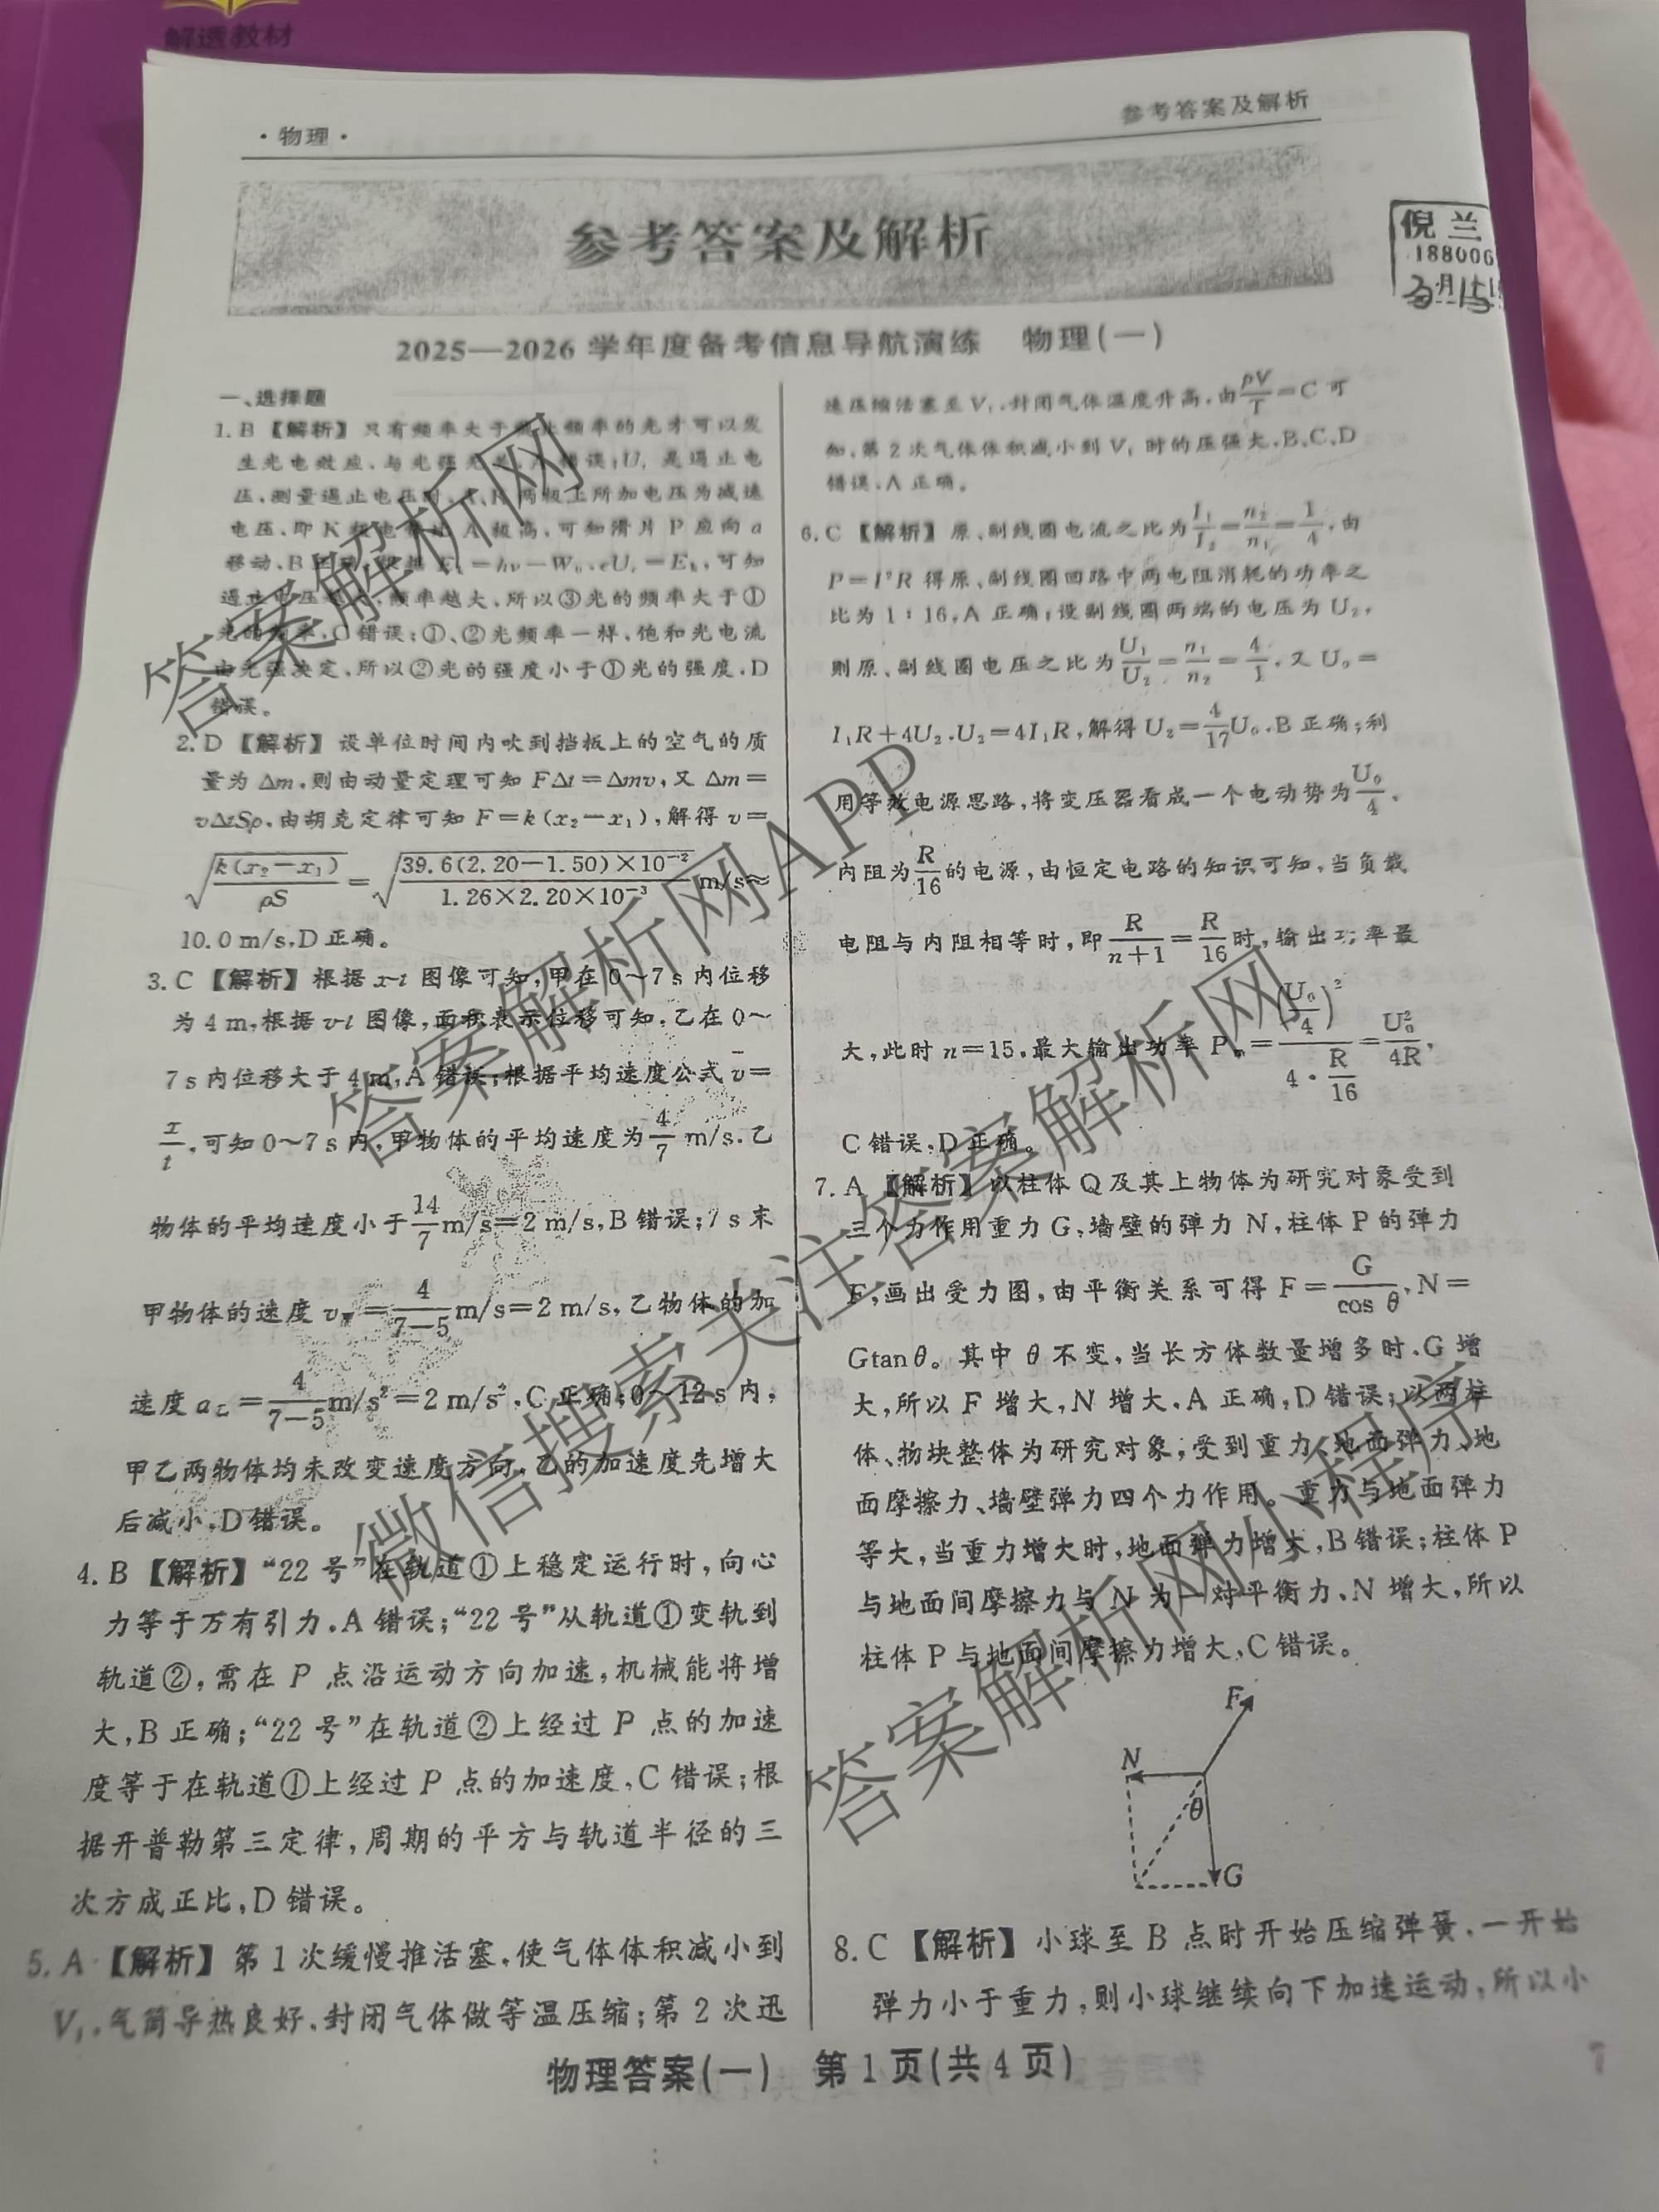 解透教材
·物理·
参考答案及解析
参考答案及解析
倪兰
188006
2025—2026 学年度备考信息导航演练 物理(一)
一、选择题
1. B 【解析】只有频率大于截止频率的光才可以发
生光电效应,与光强无关,A错误;U
是遏止电
压,测量遏止电压时,A、K两极上所加电压为减速
电压,即K极电势比A极高,可知滑片P应向a
移动,B正确;根据Eₖ=hν-W₀,eU꜀=Eₖ,可知
遏止电压越大,频率越大,所以③光的频率大于①
光的频率,C错误;①、②光频率一样,饱和光电流
由光强决定,所以②光的强度小于①光的强度,D
错误。
2. D 【解析】设单位时间内吹到挡板上的空气的质
量为Δm,则由动量定理可知FΔt=Δmv,又Δm=
vΔtSρ,由胡克定律可知F=k(x₂-x₁),解得v=
√(k(x₂-x₁)/ρS)=√(39.6(2.20-1.50)×10⁻²/1.26×2.20×10⁻³) m/s≈
10.0 m/s,D正确。
3. C 【解析】根据x-t图像可知,甲在0~7 s内位移
为4 m,根据v-t图像,面积表示位移可知,乙在0~
7 s内位移大于4 m,A错误;根据平均速度公式v̄=
x/t,可知0~7 s内,甲物体的平均速度为4/7 m/s,乙
物体的平均速度小于14/7 m/s=2 m/s,B错误;7 s末
甲物体的速度v甲=4/(7-5) m/s=2 m/s,乙物体的加
速度a乙=4/(7-5) m/s²=2 m/s²,C正确;0~12 s内,
甲乙两物体均未改变速度方向,乙的加速度先增大
后减小,D错误。
4. B 【解析】“22号”在轨道①上稳定运行时,向心
力等于万有引力,A错误;“22号”从轨道①变轨到
轨道②,需在P点沿运动方向加速,机械能将增
大,B正确;“22号”在轨道②上经过P点的加速
度等于在轨道①上经过P点的加速度,C错误;根
据开普勒第三定律,周期的平方与轨道半径的三
次方成正比,D错误。
5. A 【解析】第1次缓慢推活塞,使气体体积减小到
V₁,气筒导热良好,封闭气体做等温压缩;第2次迅
速压缩活塞至V₁,封闭气体温度升高,由pV/T=C可
知,第2次气体体积减小到V₁时的压强大,B、C、D
错误,A正确。
6. C 【解析】原、副线圈电流之比为I₁/I₂=n₂/n₁=1/4,由
P=I²R得原、副线圈回路中两电阻消耗的功率之
比为1:16,A正确;设副线圈两端的电压为U₂,
则原、副线圈电压之比为U₁/U₂=n₁/n₂=4/1,又U₀=
I₁R+4U₂,U₂=4I₁R,解得U₂=4/17U₀,B正确;利
用等效电源思路,将变压器看成一个电动势为U₀/4,
内阻为R/16的电源,由恒定电路的知识可知,当负载
电阻与内阻相等时,即R/(n+1)=R/16时,输出功率最
大,此时n=15,最大输出功率Pₘ=(U₀/4)²/(4·R/16)=U₀²/4R,
C错误,D正确。
7. A 【解析】以柱体Q及其上物体为研究对象受到
三个力作用重力G,墙壁的弹力N,柱体P的弹力
F,画出受力图,由平衡关系可得F=G/cos θ,N=
Gtan θ。其中θ不变,当长方体数量增多时,G增
大,所以F增大,N增大,A正确,D错误;以两柱
体、物块整体为研究对象,受到重力、地面弹力、地
面摩擦力、墙壁弹力四个力作用。重力与地面弹力
等大,当重力增大时,地面弹力增大,B错误;柱体P
与地面间摩擦力与N为一对平衡力,N增大,所以
柱体P与地面间摩擦力增大,C错误。
F
N
θ
G
8. C 【解析】小球至B点时开始压缩弹簧,一开始
弹力小于重力,则小球继续向下加速运动,所以小
物理答案(一) 第1页(共4页)
答案解析网
答案解析网APP
微信搜索关注答案解析网
答案解析网小程序